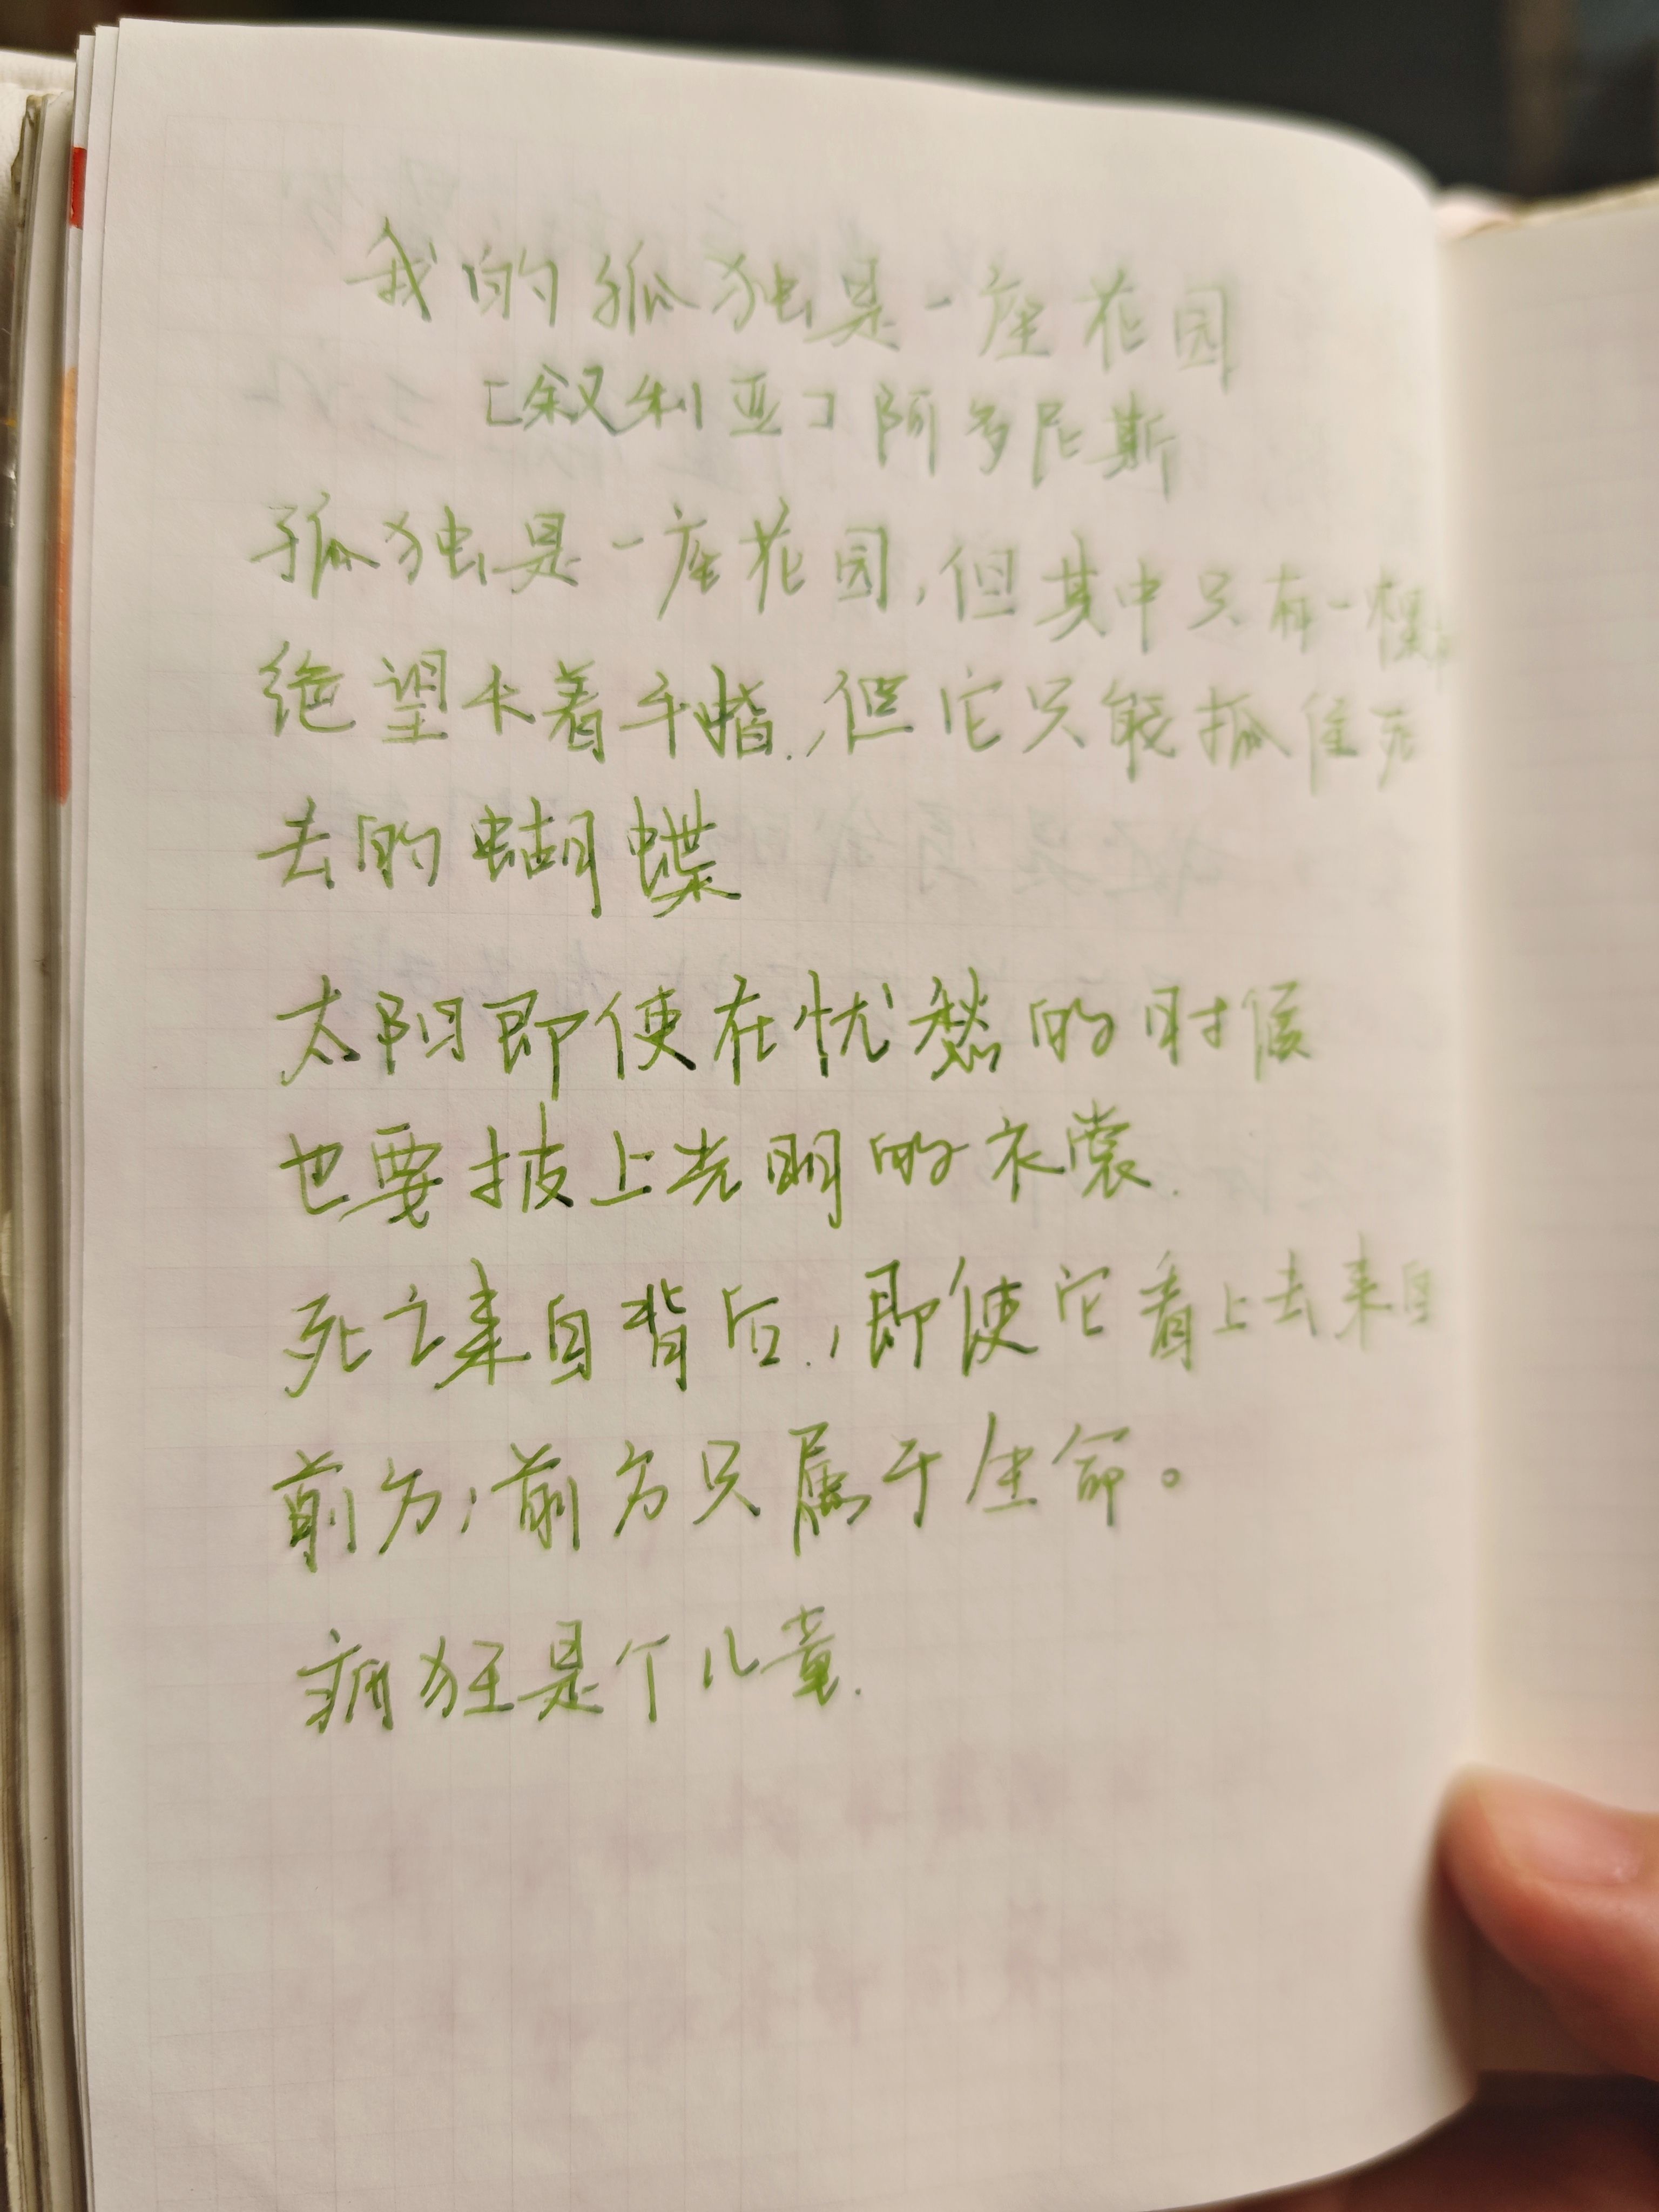 我的孤独是一座花园
[叙利亚]阿多尼斯
孤独是一座花园,但其中只有一棵
绝望长着手指,但它只能抓住死
去的蝴蝶
太阳即使在忧愁的时候
也要披上光明的衣裳.
死亡来自背后,即使它看上去来自
前方;前方只属于生命。
疯狂是个儿童.